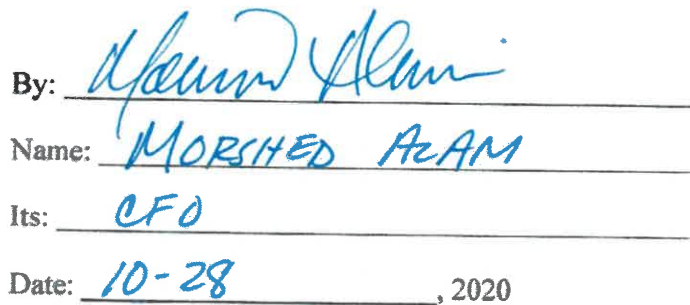 By:
Name: MORSHED ALAM
Its: CFO
Date: 10-28, 2020